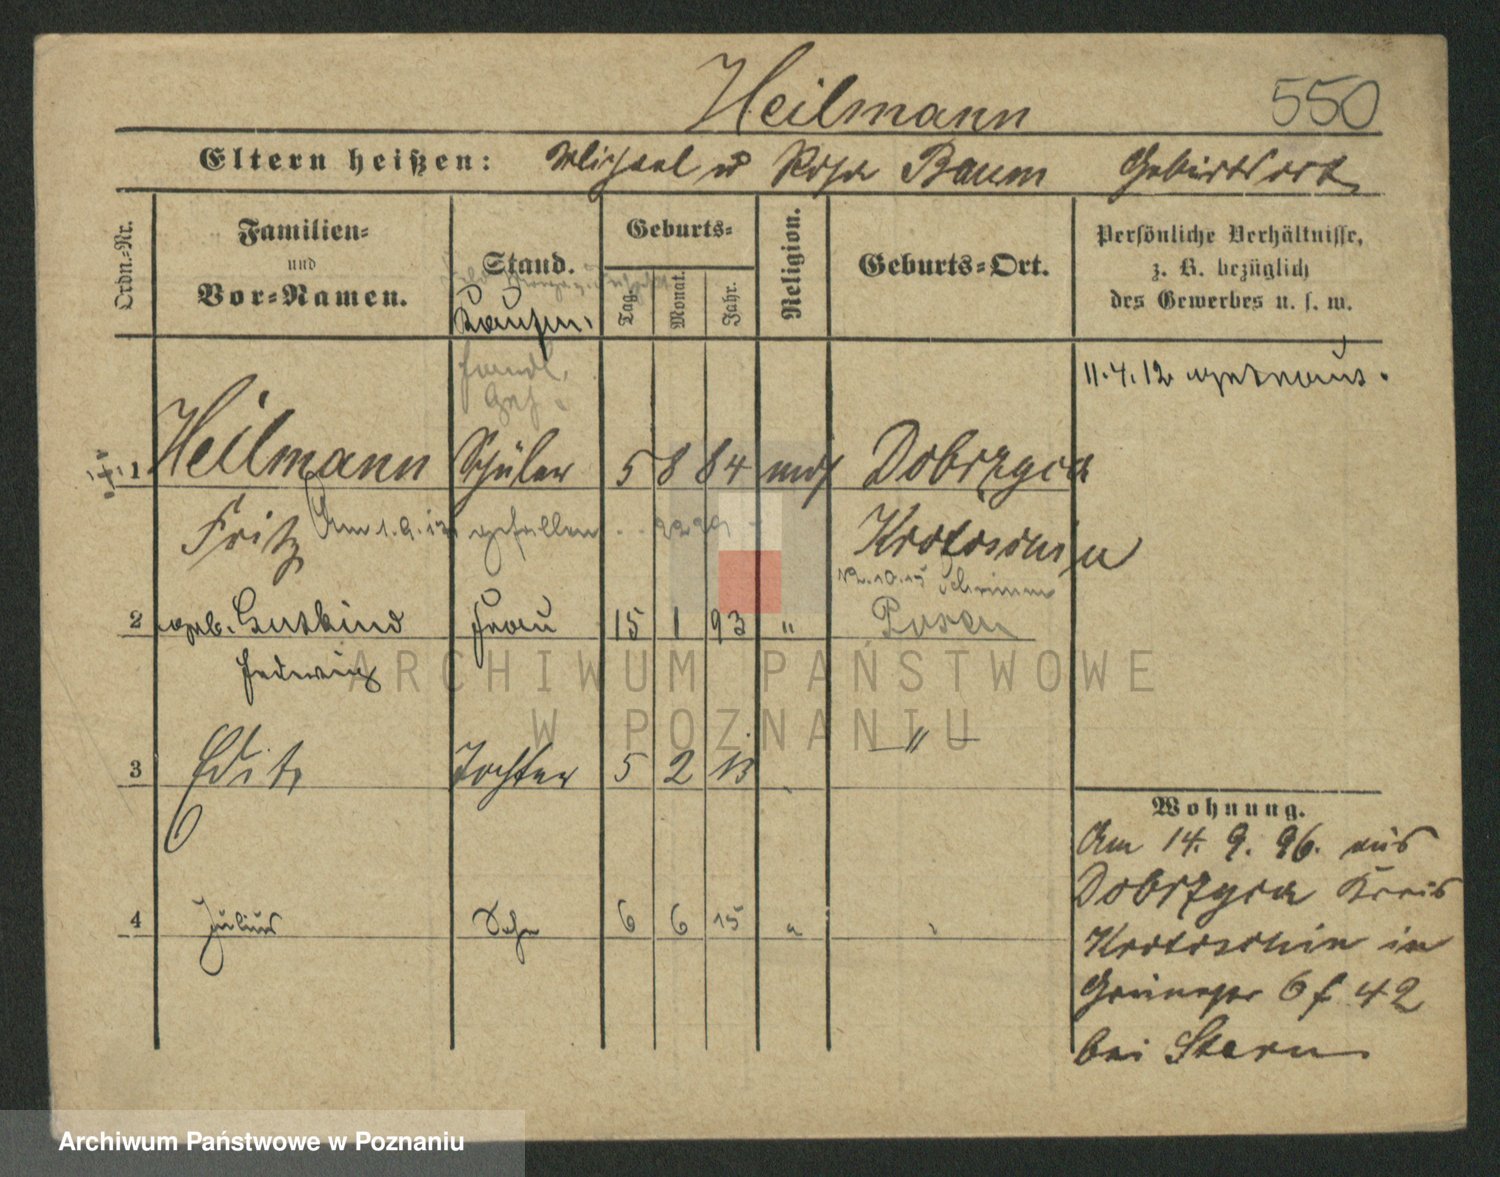 Heilmann 550
Eltern heißen: Michael u Rosa Baum Geburtsort
Ordn.-Nr.
Familien-
und
Vor-Namen.
Stand.
Geburts-
Tag.
Monat.
Jahr.
Religion.
Geburts-Ort.
Persönliche Verhältnisse,
z. B. bezüglich
des Gewerbes u. s. w.
Kaufm.
Handl.
11.4.12 getraut.
1 Heilmann Schüler 5 8 84 mos Dobrzyca
Fritz Am 1.9. gefallen Krotoschin
Schrimm
2 geb. Gutkind Frau 15 1 93 " Posen
Hedwig
3 Edith Tochter 5 2 13 "
4 Julius Sohn 6 6 15 "
Wohnung.
Am 14. 9. 96. aus
Dobrzyca Kreis
Krotoschin in
6 f 42
bei Stern
ARCHIWUM PAŃSTWOWE
W POZNANIU
Archiwum Państwowe w Poznaniu